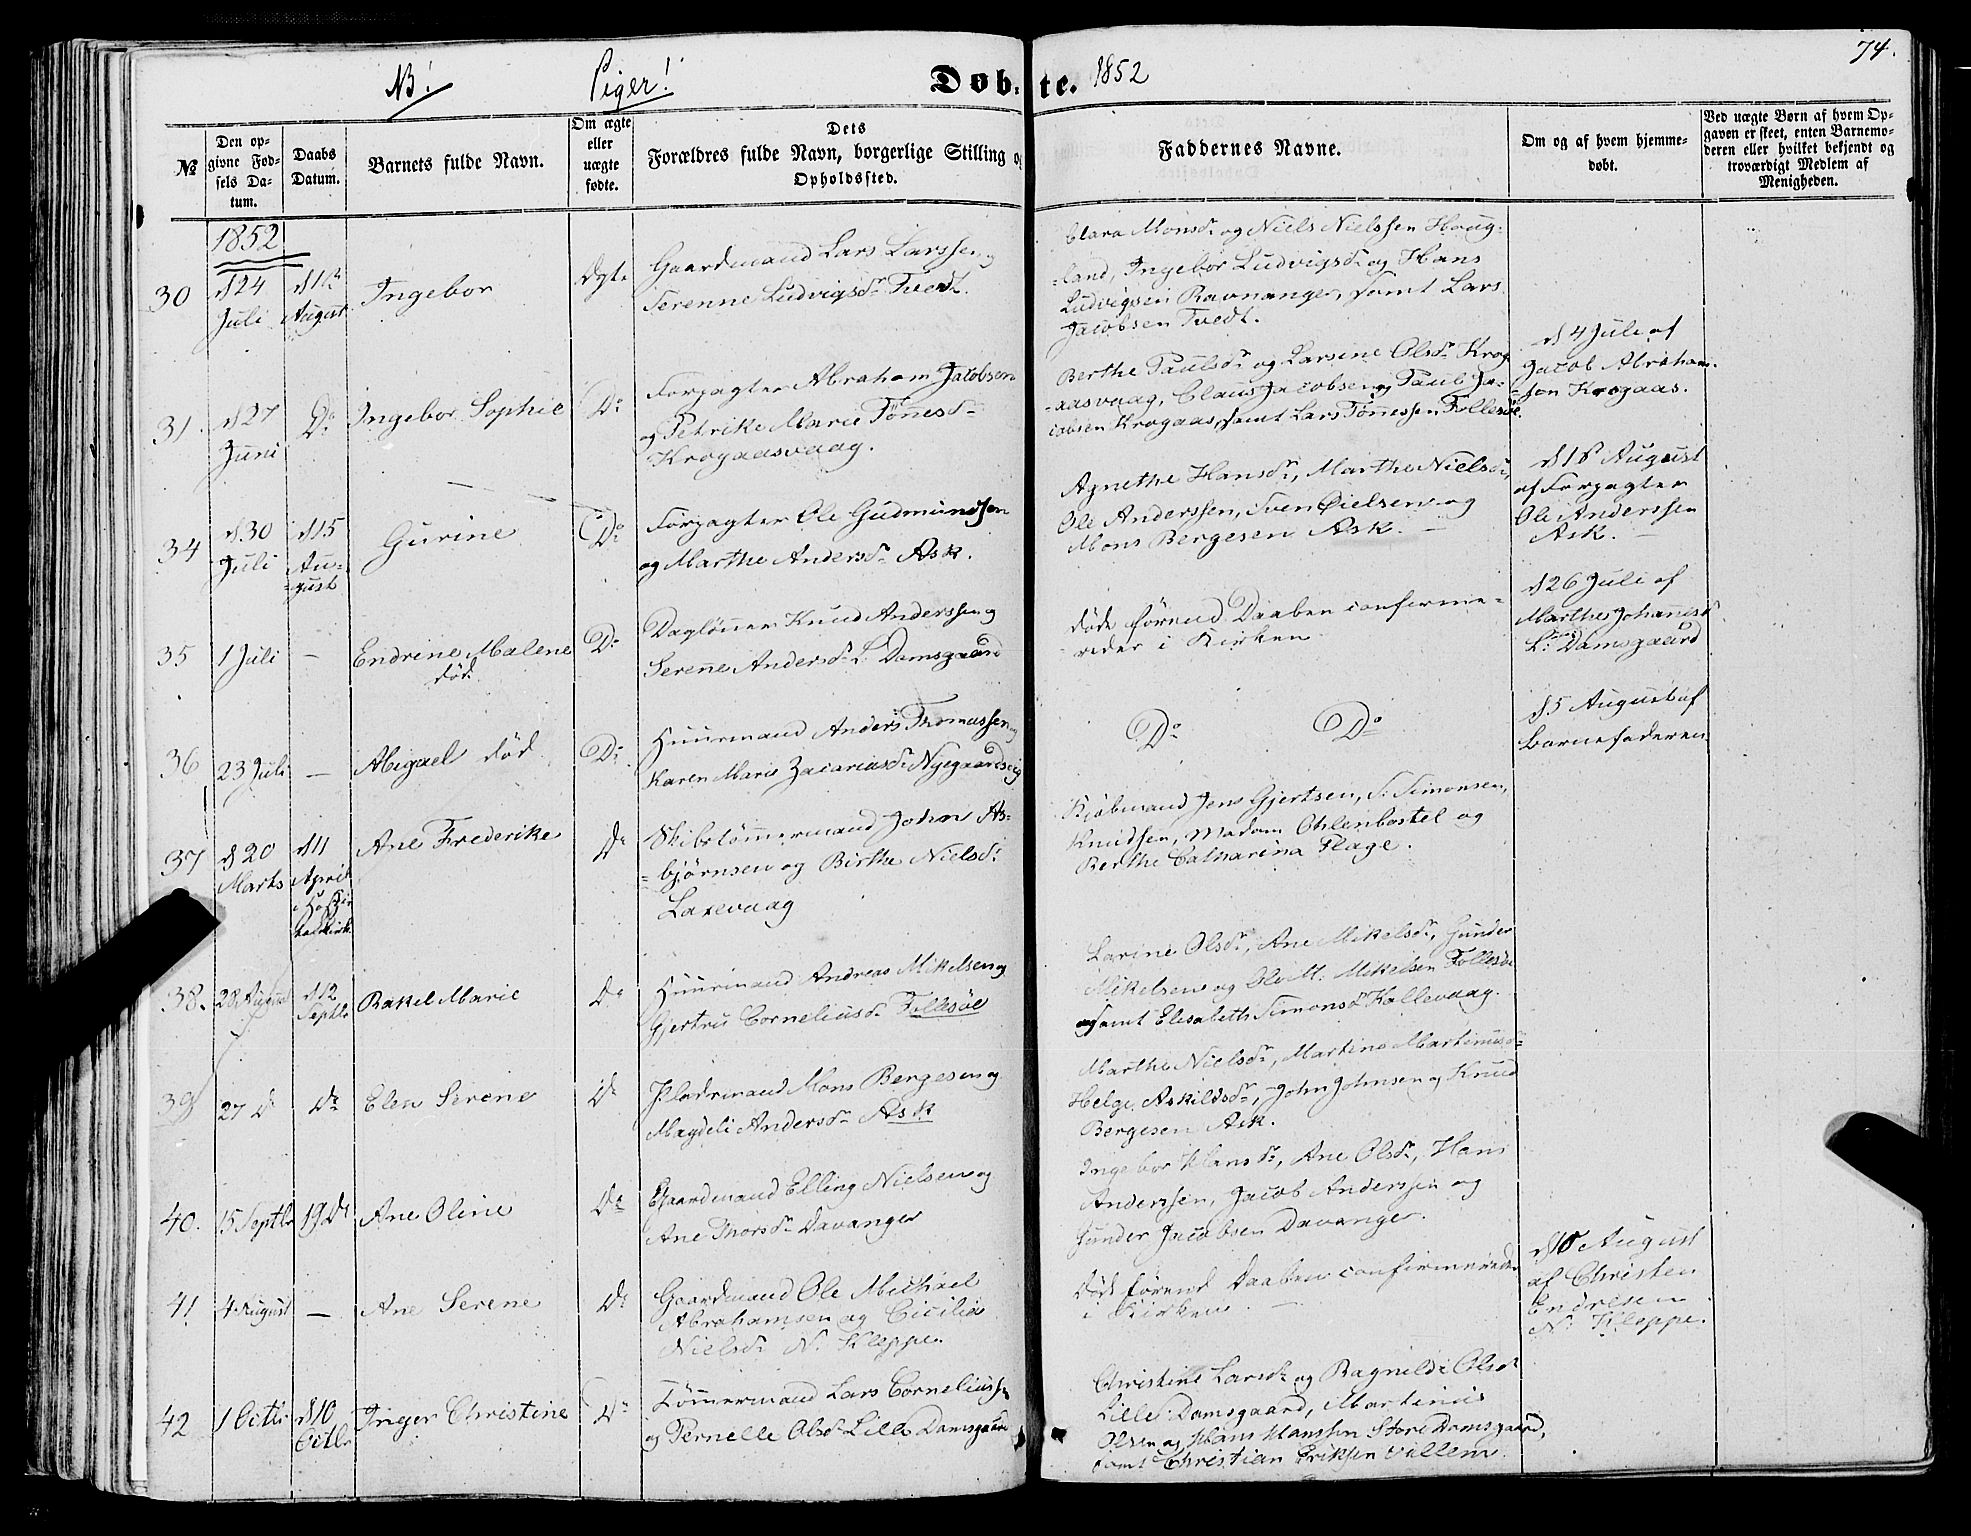 74.
NB! Piger! Døbte. 1852
№
Den opgivne Fødsels Datum.
Daabs Datum.
Barnets fulde Navn.
Om ægte eller uægte fødte.
Dets Forældres fulde Navn, borgerlige Stilling og Opholdssted.
Faddernes Navne.
Om og af hvem hjemmedøbt.
Ved uægte Børn af hvem Opgaven er skeet, enten Barnemoderen eller hvilket bekjendt og troværdigt Medlem af Menigheden.
1852
30
d 24 Juli
August
Ingebor
Ægte
Gaardmand Lars Larssen og
Serenne Ludvigsdr Tvedt.
Clara Monsdr og Niels Nielssen Houg-
land, Ingebor Ludvigsdr og Hans
Ludvigsen Ravnanger, samt Lars
Jacobsen Tvedt.
31.
d 27 Juni
Do
Ingebor Sophie
Do
Forpagter Abraham Jacobsen
og Petrike Marie Tønesdr
Krogaasvaag.
Berthe Paulsdr og Larsine Olsdr Krog
aasvaag, Claus Jacobsen og Paul Ja-
cobsen Krogaas, samt Lars Tønnessen Follesøe.
d 4 Juli af
Jacob Abraham-
sen Krogaas.
34
d 30 Juli
d 15 Au-
gust
Gurine
Do
Forpagter Ole Gudmundsen
og Marthe Andersdr Ask.
Agnethe Hansdr, Marthe Nielsdr,
Ole Anderssen, Sven Oielsen og
Mons Bergesen Ask. —
August
af Forpagter
Ole Anderssen
Ask. —
35
1 Juli
—
Endrine Malene
død
Do
Daglønner Knud Anderssen og
Serenne Andersdr L. Damsgaard
døde førend Daaben confirme-
redes i Kirken.
d 26 Juli af
Marthe Johanesdr
L. Damsgaard
36
23 Juli
—
Abigael død
Do
Huusmand Anders Thomassen og
Karen Marie Zacariasdr Nygaardsvig
Do Do
d 5 August af
Barnefaderen
37
d 20 Marts
d 11 April
Ane Frederike
Do
Skibstømmermand John As-
bjørnsen og Birthe Nielsdr
Laxevaag
Kjøbmand Jens Gjertsen, S. Simonsen,
Knudsen, Madam Ohlenbostel og
Berthe Catharina Flage.
38.
28 August
d 12 Septbr
Rakel Marie
Do
Huusmand Andreas Mikelsen og
Gjertru Corneliusdr Follesøe
Larine Olsdr, Ane Mikelsdr, Gunder
Mikelsen og Ole M. Mikelsen Follesøe
samt Elisabeth Simonsdr Kallevaag.
39
27 Do
Do
Elen Serene
Do
Pladsmand Mons Bergesen og
Magdeli Andersdr Ask
Marthe Nielsdr, Martine Martinusdr
Helge Askildsdr, John Johnsen og Knud
Bergesen Ask.
40.
15 Septbr
19 Do
Ane Oline
Do
Gaardmand Elling Nielsen og
Ane Thorsdr Davanger
Ingebor Hansdr, Ane Olsdr, Hans
Anderssen, Jacob Anderssen og
Gunder Jacobsen Davanger.
41
4 August
—
Ane Serene
Do
Gaardmand Ole Michael
Abrahamsen og Cicilia
Nielsdr N. Kleppe.
Døde førend Daaben confirmeredes
i Kirken. —
d 10 August
af Christen
Endresen
N. Kleppe.
42
1 Octbr
d 10 Octbr
Inger Christine
Do
Tømmermand Lars Corneliussen
og Pernelle Olsdr Lille Damsgaard
Christine Larsdr og Ragnilde Olsdr
Lille Damsgaard, Martinus
Olsen og Hans Hanssen Store Damsgaard,
samt Christian Eriksen